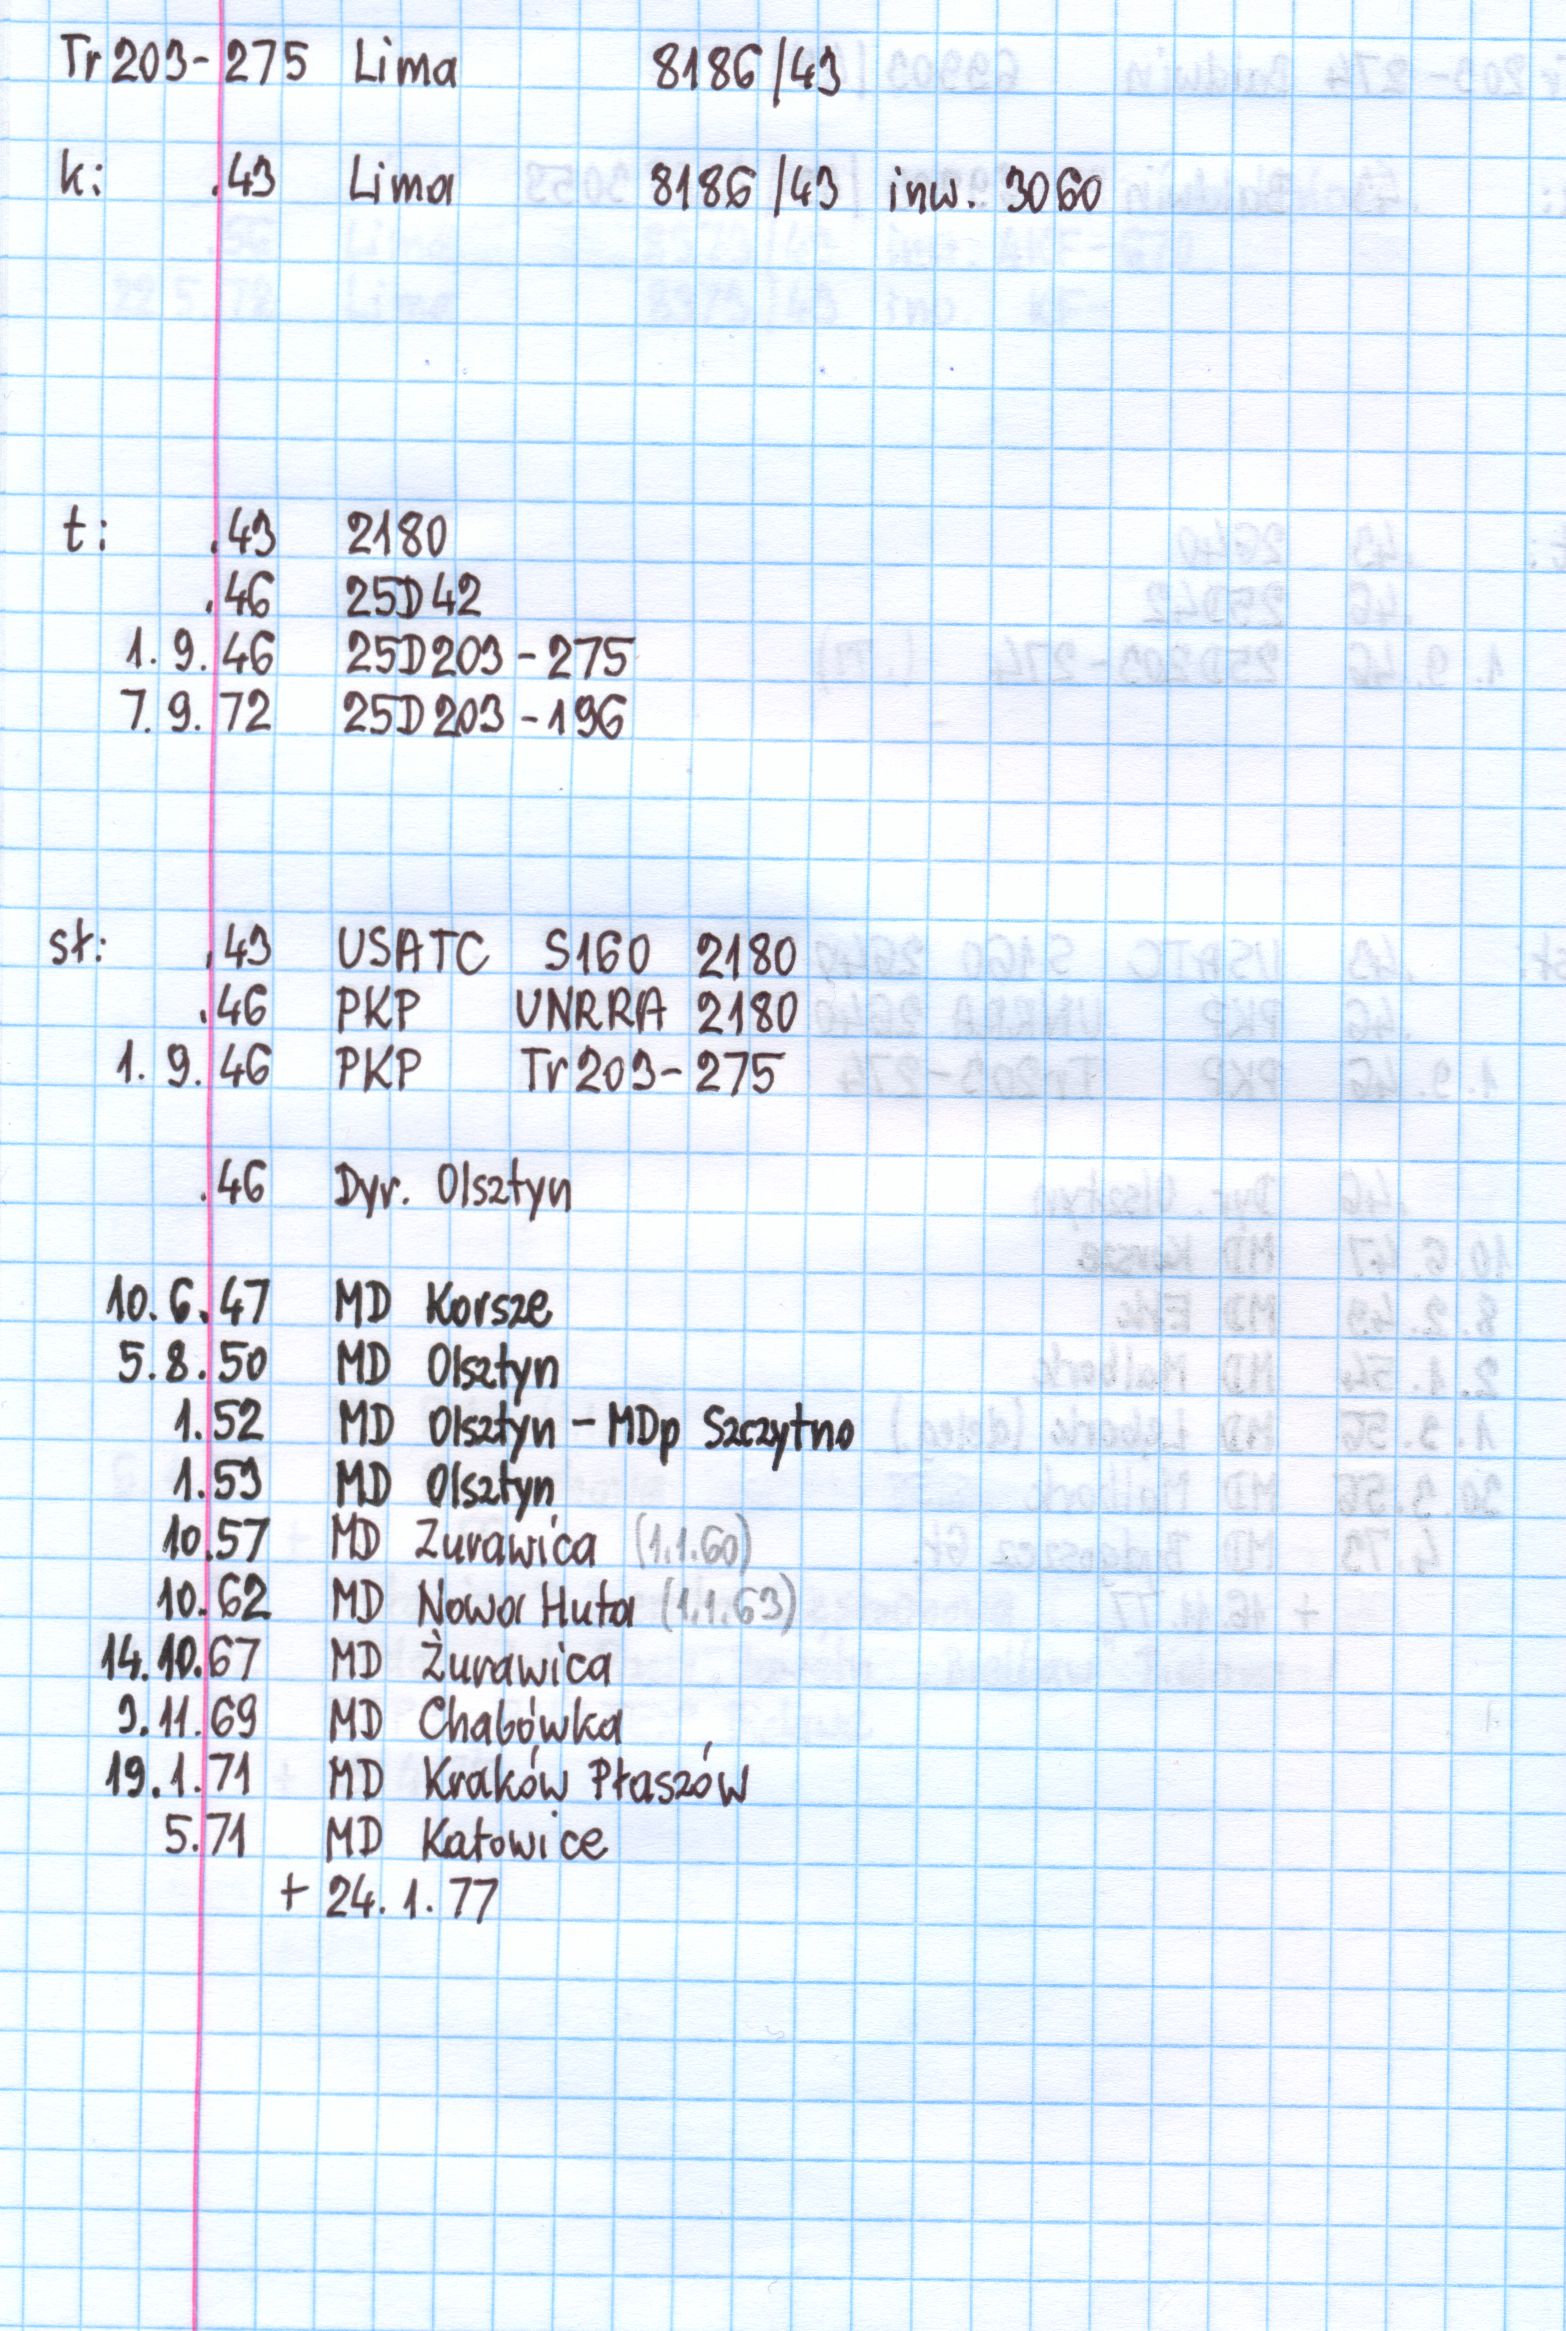 Tr203-275 Lima 8186/43
k: .43 Lima 8186/43 inw. 3060
t: .43 2180
.46 25D42
1. 9. 46 25D203-275
7. 9. 72 25D203-196
sł: .43 USATC S160 2180
.46 PKP UNRRA 2180
1. 9. 46 PKP Tr203-275
.46 Dyr. Olsztyn
10. 6. 47 MD Korsze
5. 8. 50 MD Olsztyn
1. 52 MD Olsztyn - MDp Szczytno
1. 53 MD Olsztyn
10. 57 MD Żurawica (1.1.60)
10. 62 MD Nowa Huta (1.1.63)
14. 10. 67 MD Żurawica
3. 11. 69 MD Chabówka
19. 1. 71 MD Kraków Płaszów
5. 71 MD Katowice
+ 24. 1. 77